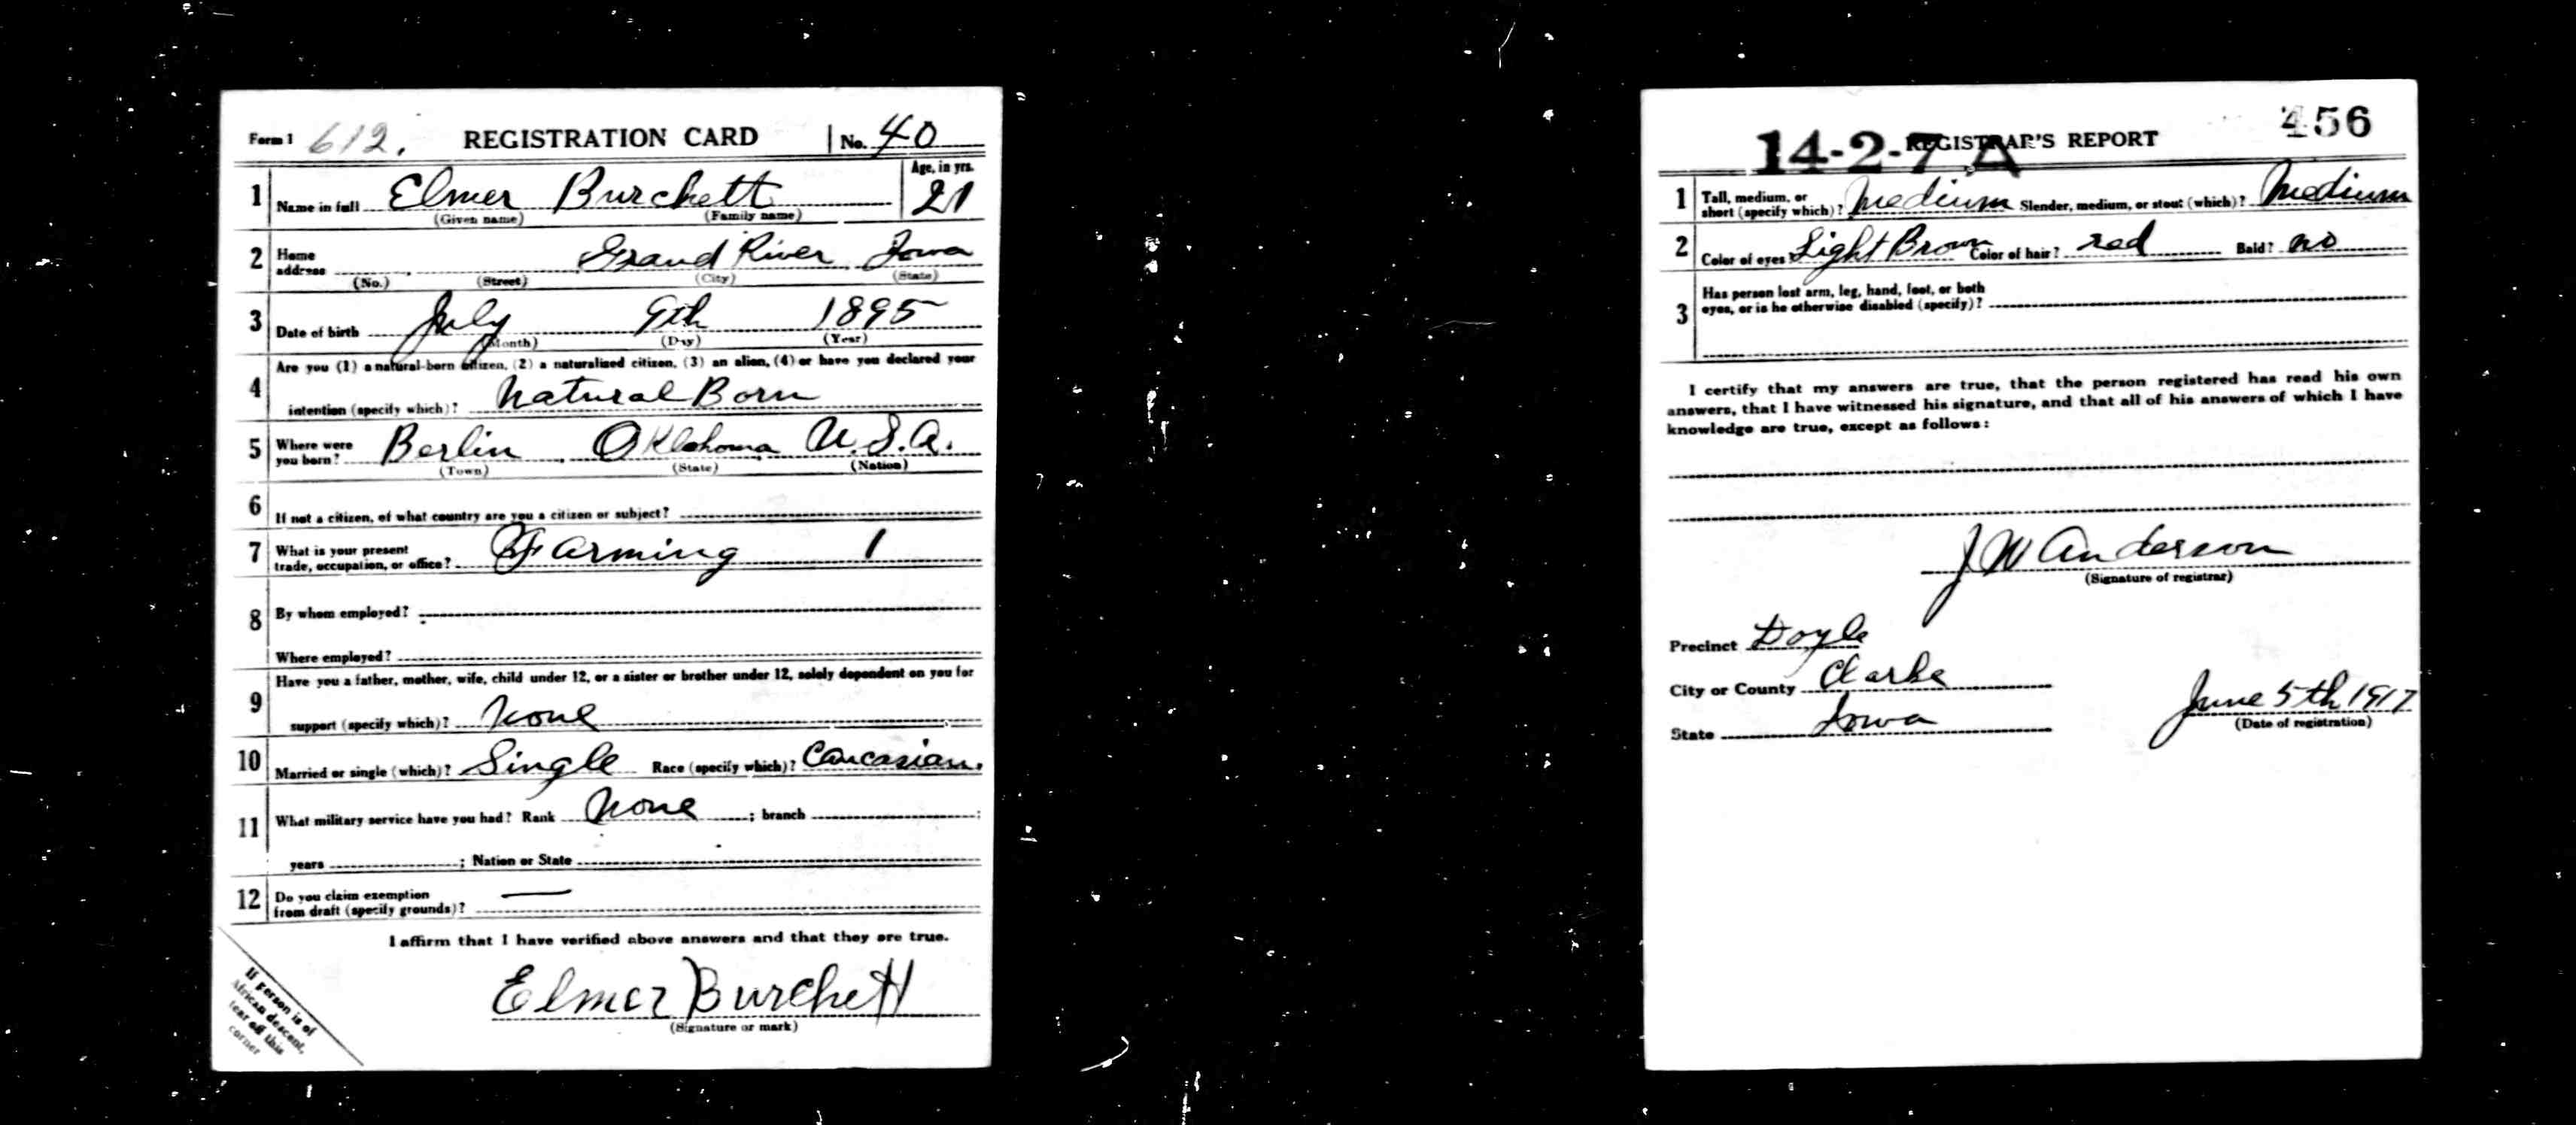 Form 1 612. REGISTRATION CARD No. 40
1 Name in full Elmer Burchett Age, in yrs. 21
(Given name) (Family name)
2 Home address Grand River Iowa
(No.) (Street) (City) (State)
3 Date of birth July 9th 1895
(Month) (Day) (Year)
Are you (1) a natural-born citizen, (2) a naturalized citizen, (3) an alien, (4) or have you declared your
4 intention (specify which)? Natural Born
5 Where were you born? Berlin Oklahoma U.S.A.
(Town) (State) (Nation)
6 If not a citizen, of what country are you a citizen or subject?
7 What is your present trade, occupation, or office? Farming 1
8 By whom employed?
Where employed?
Have you a father, mother, wife, child under 12, or a sister or brother under 12, solely dependent on you for
9 support (specify which)? None
10 Married or single (which)? Single Race (specify which)? Caucasian.
11 What military service have you had? Rank None ; branch ;
years ; Nation or State
12 Do you claim exemption from draft (specify grounds)? —
I affirm that I have verified above answers and that they are true.
Elmer Burchett
(Signature or mark)
If person is of
African descent,
tear off this
corner
456
14-2-7 A REGISTRAR'S REPORT
1 Tall, medium, or short (specify which)? Medium Slender, medium, or stout (which)? Medium
2 Color of eyes? Light Brown Color of hair? red Bald? no
3 Has person lost arm, leg, hand, foot, or both eyes, or is he otherwise disabled (specify)?
I certify that my answers are true, that the person registered has read his own
answers, that I have witnessed his signature, and that all of his answers of which I have
knowledge are true, except as follows:
J W Anderson
(Signature of registrar)
Precinct Doyle
City or County Clarke
State Iowa
June 5th 1917
(Date of registration)